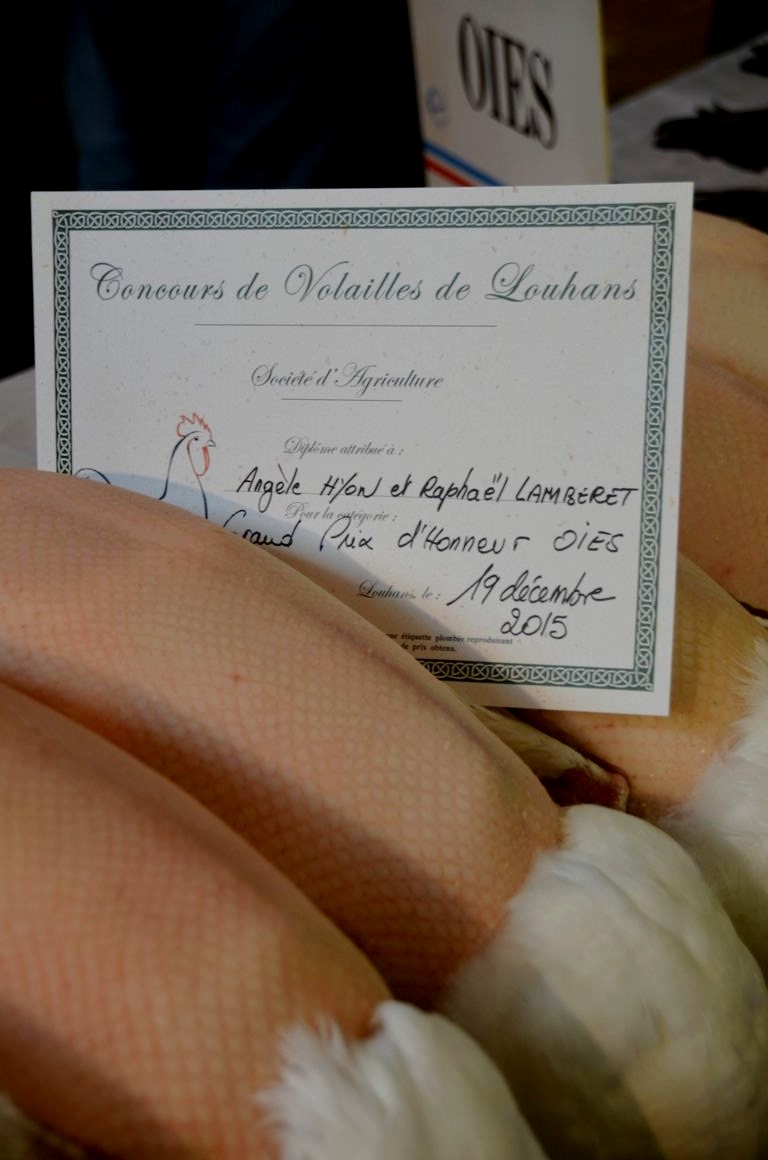 OIES
Concours de Volailles de Louhans
Société d'Agriculture
Diplôme attribué à :
Angèle HYON et Raphaël LAMBERET
Pour la catégorie :
Grand Prix d'Honneur OIES
Louhans, le : 19 décembre
2015
une étiquette plombée reproduisant
de prix obtenu.